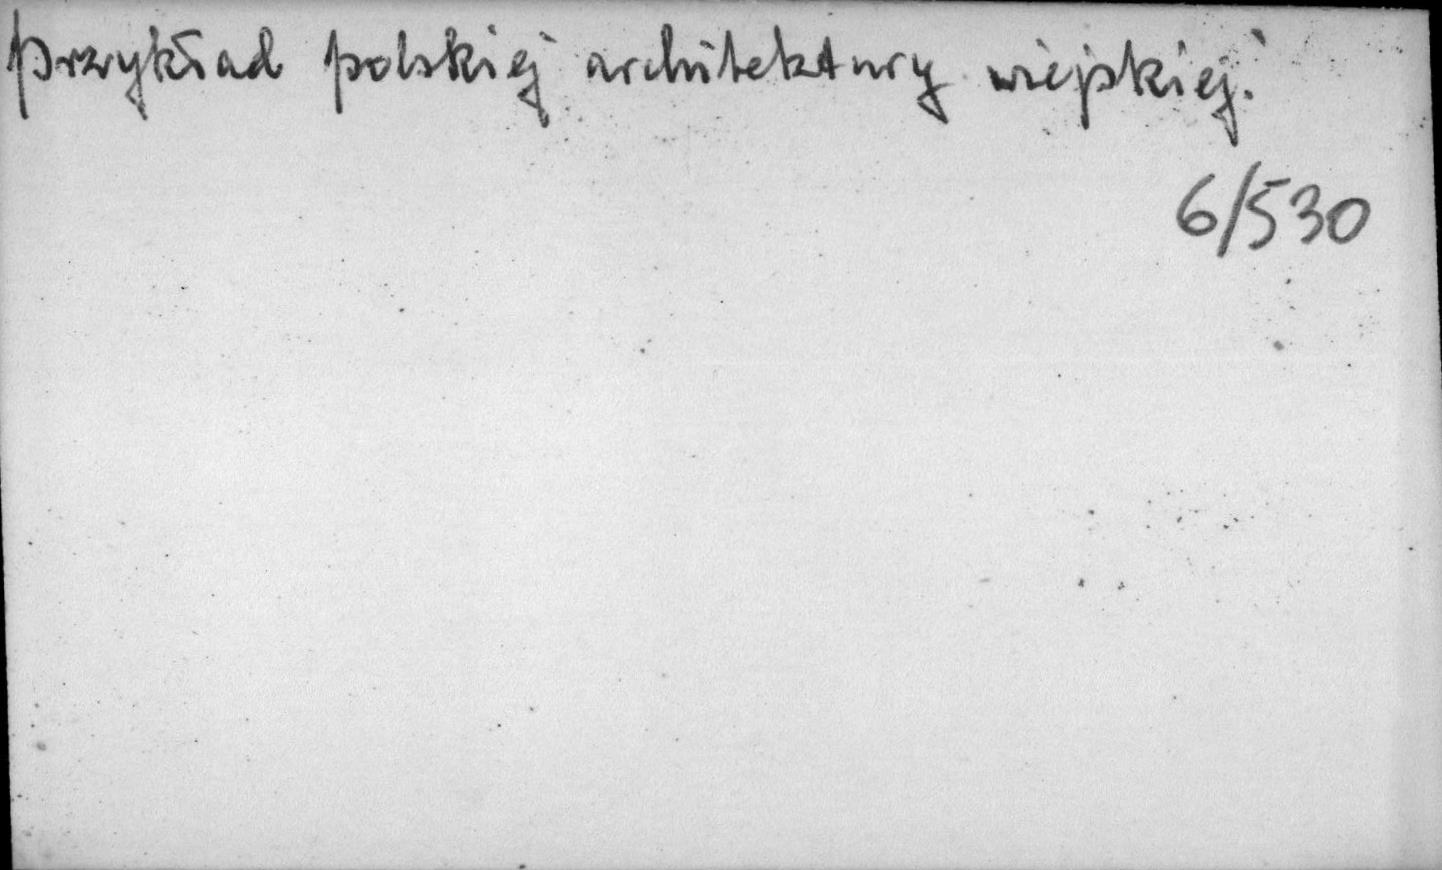 przykład polskiej architektury wiejskiej.
6/530